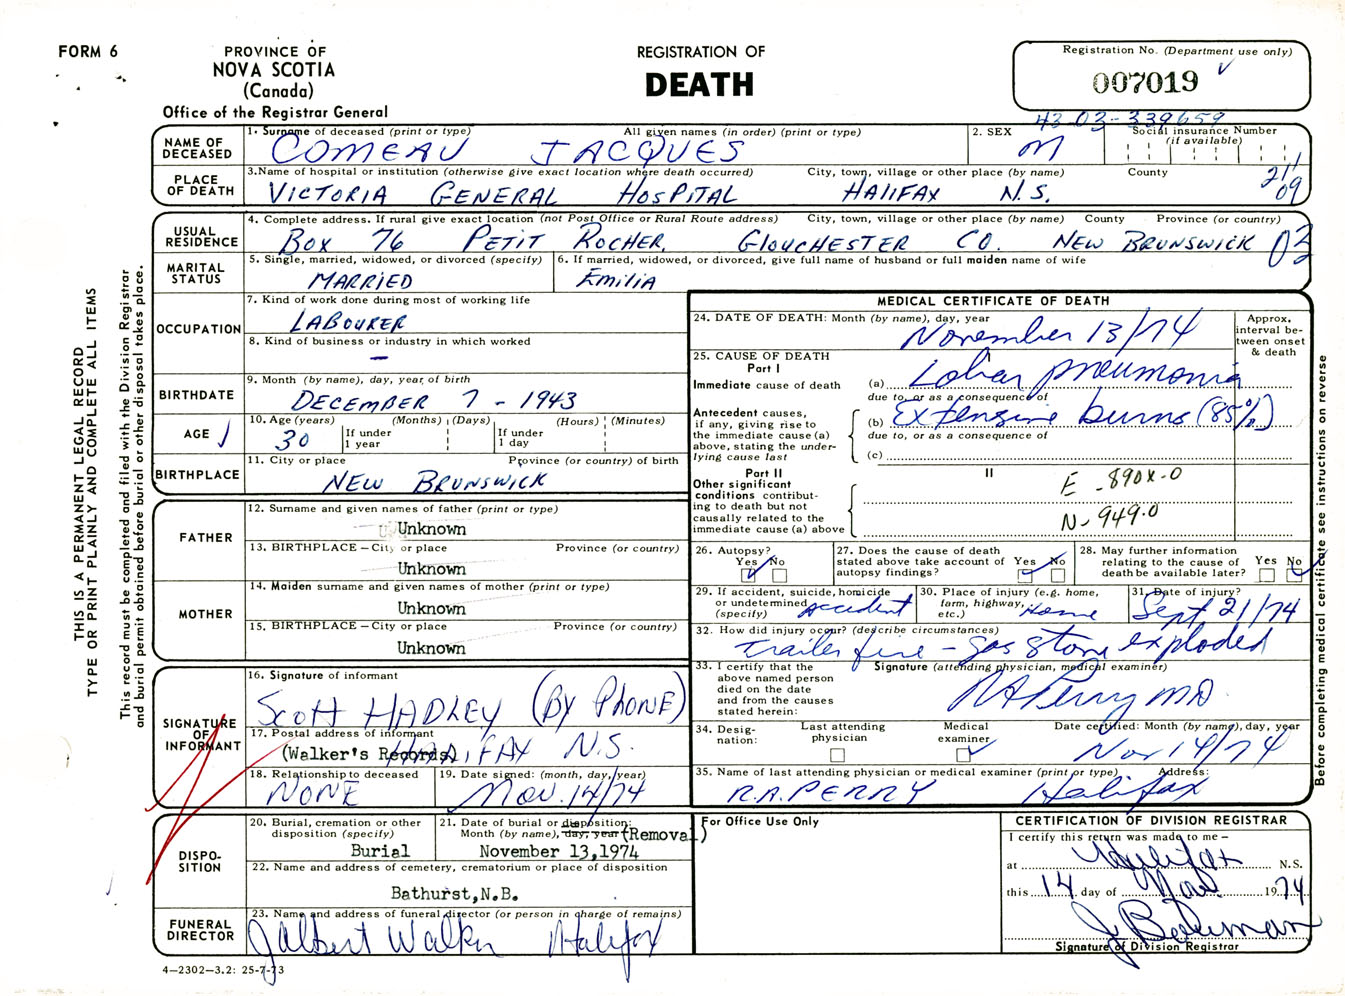 FORM 6
PROVINCE OF
NOVA SCOTIA
(Canada)
Office of the Registrar General
REGISTRATION OF
DEATH
Registration No. (Department use only)
007019
43 03 - 339659
NAME OF DECEASED
1. Surname of deceased (print or type) All given names (in order) (print or type)
COMEAU JACQUES
2. SEX
M
Social insurance Number (if available)
PLACE OF DEATH
3. Name of hospital or institution (otherwise give exact location where death occurred) City, town, village or other place (by name) County
VICTORIA GENERAL HOSPITAL HALIFAX N.S.
09
USUAL RESIDENCE
4. Complete address. If rural give exact location (not Post Office or Rural Route address) City, town, village or other place (by name) County Province (or country)
BOX 76 PETIT ROCHER, GLOUCHESTER CO. NEW BRUNSWICK 03
MARITAL STATUS
5. Single, married, widowed, or divorced (specify)
MARRIED
6. If married, widowed, or divorced, give full name of husband or full maiden name of wife
EMILIA
OCCUPATION
7. Kind of work done during most of working life
LABOURER
8. Kind of business or industry in which worked
—
BIRTHDATE
9. Month (by name), day, year of birth
DECEMBER 7 - 1943
AGE
10. Age (years) (Months) (Days) (Hours) (Minutes)
30 If under 1 year If under 1 day
BIRTHPLACE
11. City or place Province (or country) of birth
NEW BRUNSWICK
FATHER
12. Surname and given names of father (print or type)
Unknown
13. BIRTHPLACE — City or place Province (or country)
Unknown
MOTHER
14. Maiden surname and given names of mother (print or type)
Unknown
15. BIRTHPLACE — City or place Province (or country)
Unknown
SIGNATURE OF INFORMANT
16. Signature of informant
SCOTT HADLEY (BY PHONE)
17. Postal address of informant
(Walker's Records) HALIFAX N.S.
18. Relationship to deceased
NONE
19. Date signed: (month, day, year)
Nov. 14/74
DISPO-
SITION
20. Burial, cremation or other disposition (specify)
Burial
21. Date of burial or disposition: Month (by name), day, year (Removal)
November 13,1974
22. Name and address of cemetery, crematorium or place of disposition
Bathurst,N.B.
FUNERAL DIRECTOR
23. Name and address of funeral director (or person in charge of remains)
J Albert Walker Halifax
4—2302—3.2: 25-7-73
MEDICAL CERTIFICATE OF DEATH
24. DATE OF DEATH: Month (by name), day, year
November 13/74
Approx. interval be-
tween onset & death
25. CAUSE OF DEATH
Part I
Immediate cause of death (a) Lobar pneumonia
due to, or as a consequence of
Antecedent causes, if any, giving rise to the immediate cause (a) above, stating the under-
lying cause last
(b) Extensive burns (85%)
due to, or as a consequence of
(c)
Part II II
Other significant conditions contribut-
ing to death but not causally related to the immediate cause (a) above
E - 890X.0
N - 949.0
26. Autopsy?
Yes No
27. Does the cause of death stated above take account of autopsy findings? Yes No
28. May further information relating to the cause of death be available later? Yes No
29. If accident, suicide, homicide or undetermined (specify)
accident
30. Place of injury (e.g. home, farm, highway, etc.)
Home
31. Date of injury?
Sept 21/74
32. How did injury occur? (describe circumstances)
trailer fire - gas stove exploded
33. I certify that the above named person died on the date and from the causes stated herein:
Signature (attending physician, medical examiner)
RA Perry MD
34. Desig-
nation:
Last attending physician
Medical examiner
Date certified: Month (by name), day, year
Nov 14/74
35. Name of last attending physician or medical examiner (print or type) Address:
R.A. PERRY Halifax
For Office Use Only
CERTIFICATION OF DIVISION REGISTRAR
I certify this return was made to me —
at Halifax N.S.
this 14 day of Nov. 1974
Signature of Division Registrar
THIS IS A PERMANENT LEGAL RECORD
TYPE OR PRINT PLAINLY AND COMPLETE ALL ITEMS
This record must be completed and filed with the Division Registrar
and burial permit obtained before burial or other disposition takes place.
Before completing medical certificate see instructions on reverse